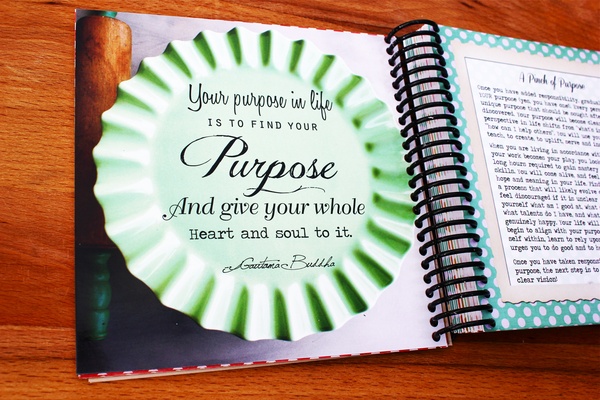 Your purpose in life
IS TO FIND YOUR
Purpose
And give your whole
Heart and soul to it.
Gautama Buddha
A Pinch of Purpose
Once you have added responsibility, gradual
YOUR purpose (yes, you have one). Every pers
unique purpose that should be sought after
discovered. Your purpose will become clear
perspective in life shifts from "what's i
"how can I help others". You will use yo
teach, to create, to uplift, serve and in
When you are living in accordance with
your work becomes your play, you look
long hours required to gain mastery
skill. You will come alive, and feel
hope and meaning in your life. Find
a process that will likely evolve o
feel discouraged if it is unclear
yourself what am I good at, what
what talents do I have, and what
genuinely happy. Your life will
begin to align with your purpose
self within, learn to rely upon
urges you to do good and to be
Once you have taken respons
purpose, the next step is to
clear vision!